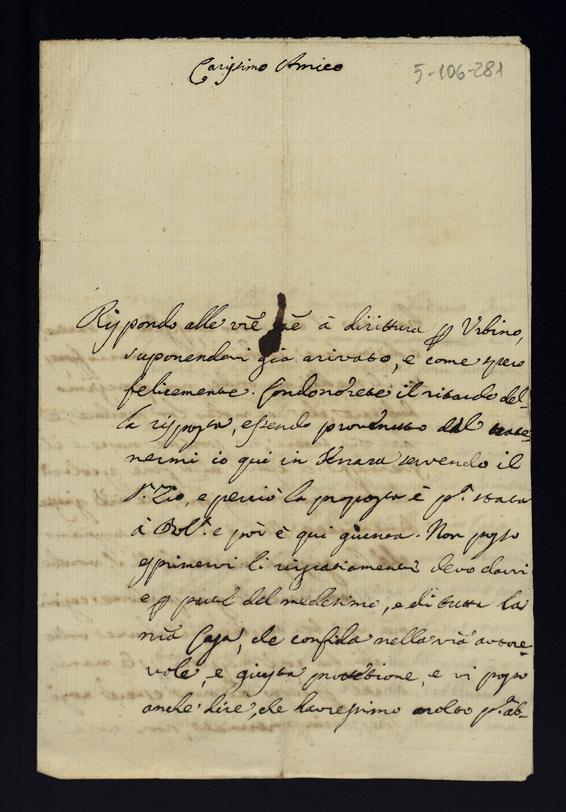 Carissimo Amico
5-106-281
Rispondo alle vrẽ à dirittura p Urbino,
suponendovi già arivato, e come spero
felicemente. Condonorete il ritardo del-
la risposta, essendo provenuto dal tratte-
nermi io qui in Ferrara servendo il
Sr. Zio, e perciò la proposta è pa. stata
à Bola. e poi è qui giunta. Non posso
esprimervi li ringratiamenti devo darvi
e p parte del medesimo, e di tutta la
nrã Casa, che confida nella vrã autore-
vole, e giusta protetione, e vi posso
anche dire, che havressimo molto pa. ab-